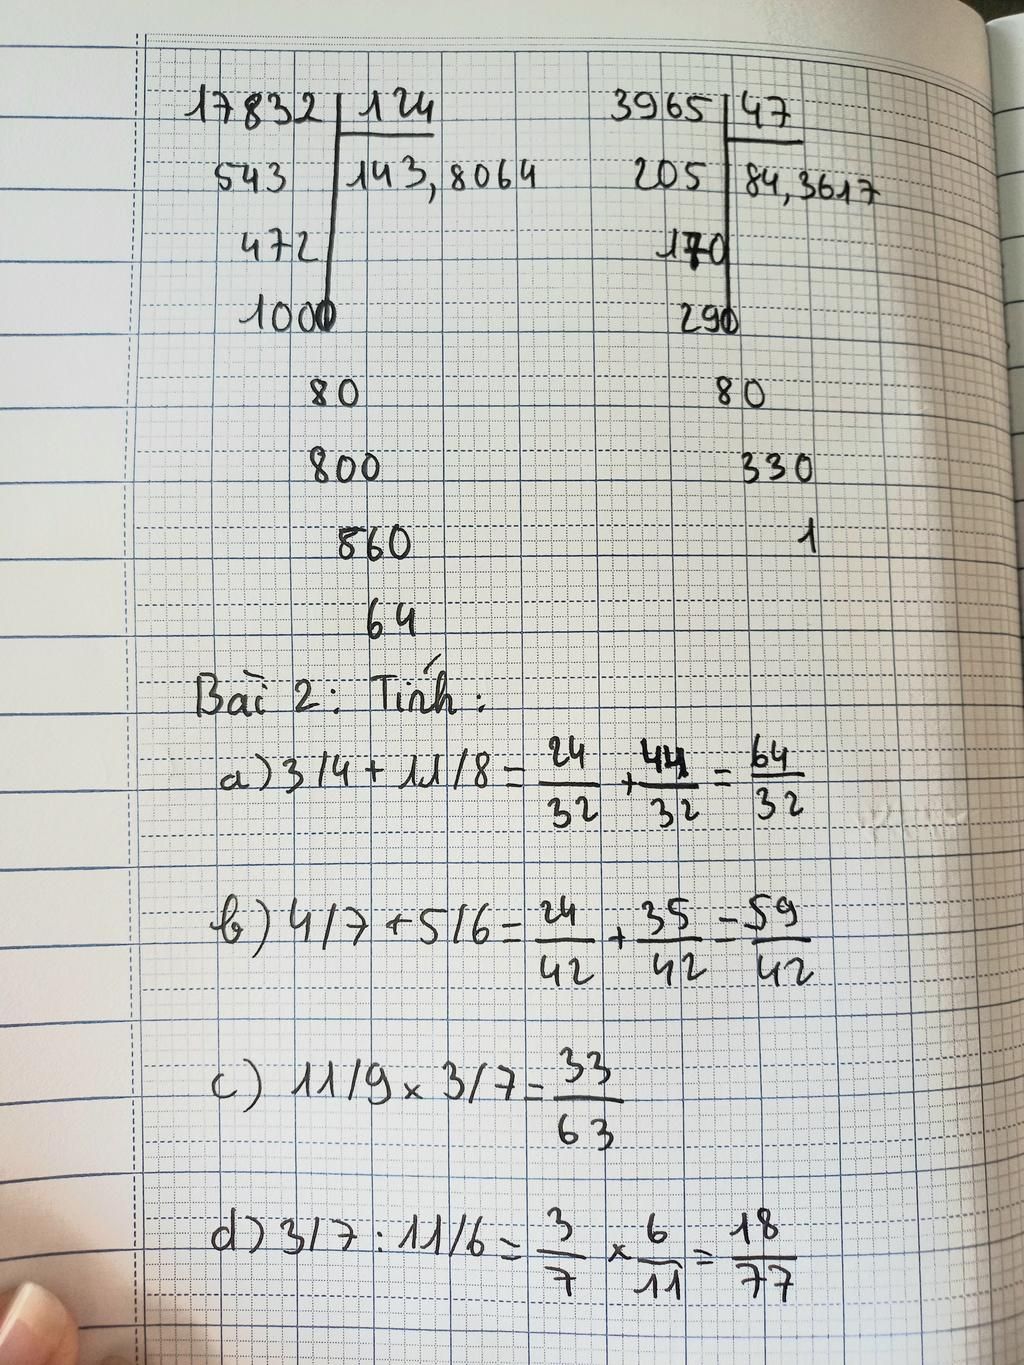 17832 124
543 143,8064
472
1000
80
800
560
64
3965 47
205 84,3617
170
290
80
330
1
Bài 2: Tính:
a) 3/4 + 11/8 = 24/32 + 44/32 = 64/32
b) 4/7 + 5/6 = 24/42 + 35/42 = 59/42
c) 11/9 x 3/7 = 33/63
d) 3/7 : 11/6 = 3/7 x 6/11 = 18/77